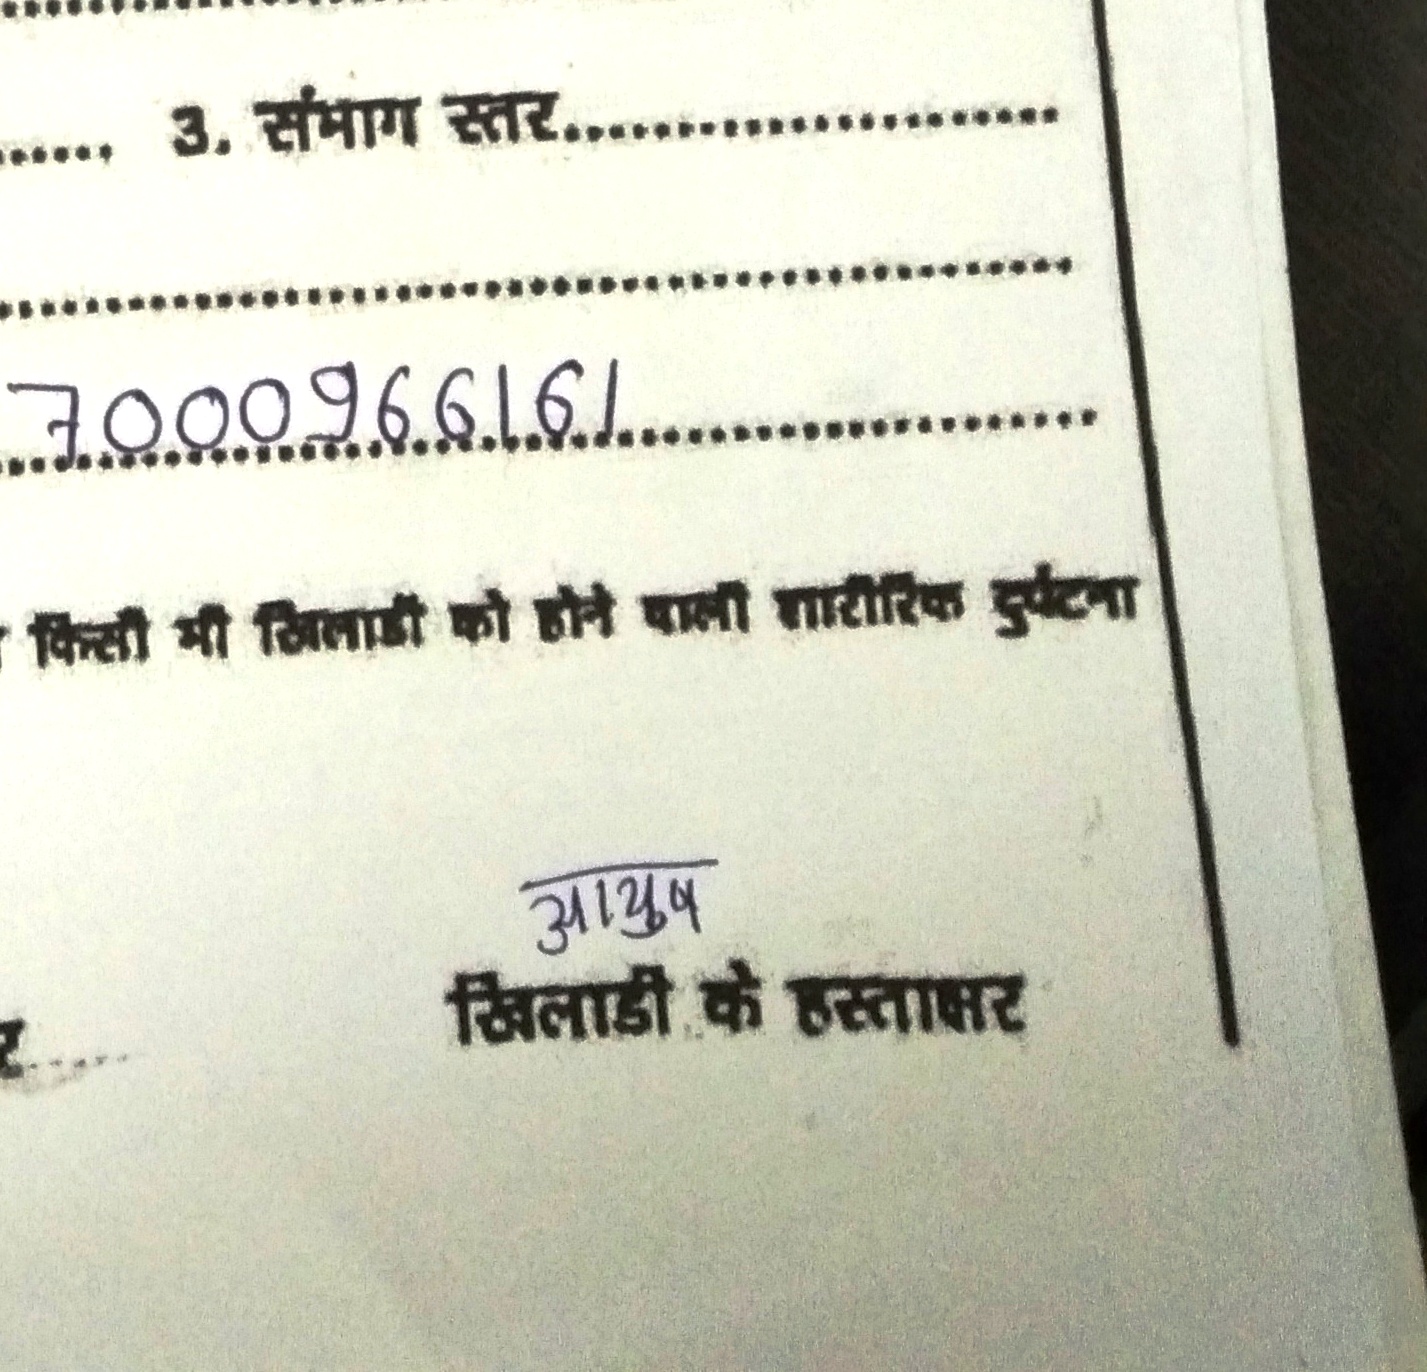 ...... 3. संभाग स्तर..............................
7000966161
किसी भी खिलाडी को होने वाली शारीरिक दुर्घटना
आयुष
र..... खिलाडी के हस्ताक्षर